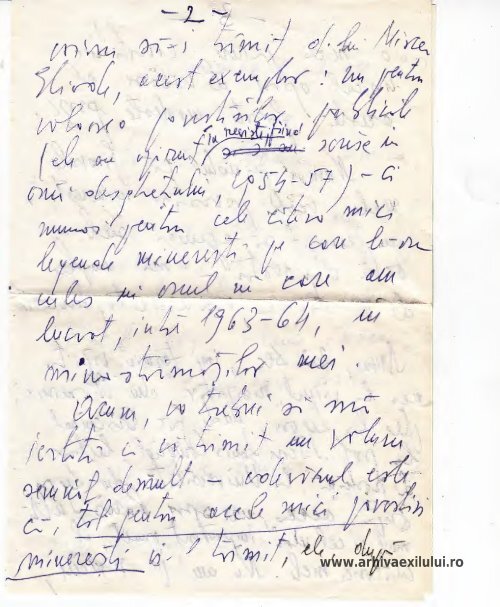 - 2 -
să-i trimit d-lui Mircea
Eliade, acest exemplar: nu pentru
valoarea povestirilor publicate
în reviste fiind
(ele au apărut scrise în
anii desghețului, 1954-57) - ci
numai pentru cele câteva mici
legende minerești pe care le-am
cules în anul în care am
lucrat, între 1963-64, în
mina strămoșilor mei.
Acum, va trebui să mă
iertați că vă trimit un volum
semnat demult - adevărul este
că, tot pentru acele mici povestiri
minerești vi-l trimit, ele, după
www.arhivaexilului.ro